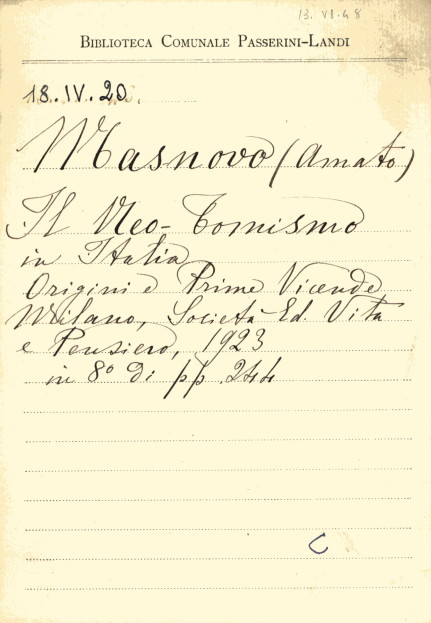 13. VI. 48
BIBLIOTECA COMUNALE PASSERINI-LANDI
18.IV.20.
Masnovo (Amato)
Il Neo-Tomismo
in Italia
Origini e Prime Vicende
Milano, Società Ed. Vita
e Pensiero, 1923
in 8° di pp. 244
C